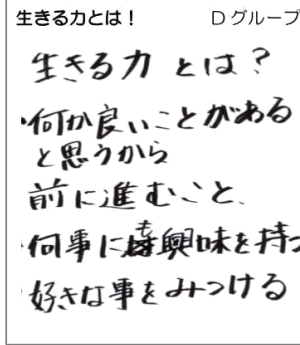 生きる力とは！ Dグループ
生きる力とは？
・何か良いことがある
と思うから
前に進むこと、
・何事にも興味を持つ
・好きな事をみつける